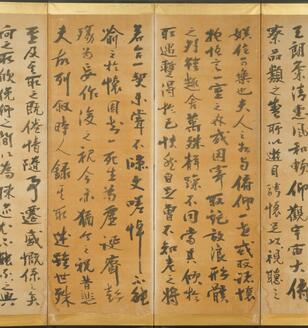 天朗氣清惠風和暢仰觀宇宙之大俯
察品類之盛所以遊目騁懷足以視聽之
娛信可樂也夫人之相與俯仰一世或取諸懷
抱悟言一室之內或因寄所託放浪形骸
之外雖趣舍萬殊靜躁不同當其欣於
所遇暫得於己快然自足曾不知老之將
若合一契未嘗不臨文嗟悼不能
喻之於懷固知一死生為虛誕齊彭
殤為妄作後之視今亦猶今之視昔悲
夫故列敘時人錄其所述雖世殊
至及其所之既倦情隨事遷感慨係之矣
向之所欣俛仰之間以為陳迹猶不能不以之興